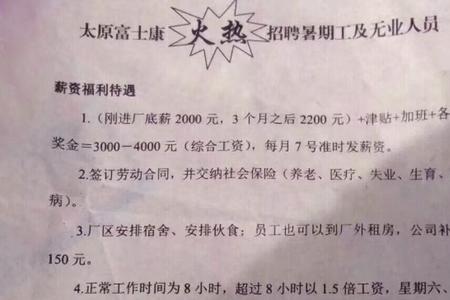 太原富士康火热招聘暑期工及无业人员
薪资福利待遇
1.（刚进厂底薪 2000 元，3 个月之后 2200 元）+津贴+加班+各
奖金＝3000－4000 元（综合工资），每月 7 号准时发薪资。
2.签订劳动合同，并交纳社会保险（养老、医疗、失业、生育、
病）。
3.厂区安排宿舍、安排伙食；员工也可以到厂外租房，公司补
150 元。
4.正常工作时间为 8 小时，超过 8 小时以 1.5 倍工资，星期六、